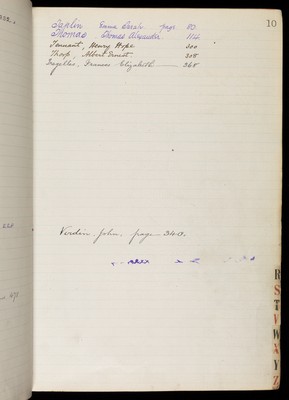 10
Taplin Emma Sarah page 83.
Thomas Thomas Alexander 114.
Tennant, Henry Hope. 300
Thorp, Albert Ernest. 308
Tregelles, Frances Elizabeth — 368
Verdin, John, page 340.
R
S
T
V
W
X
Y
Z